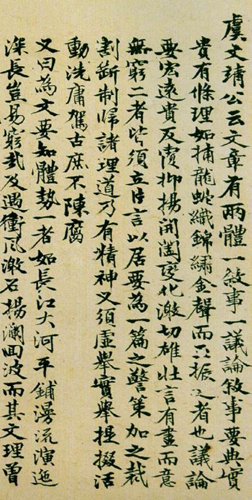 虞文靖公云文章有兩體一敘事一議論敘事要典實
貴有條理如捕龍蛇織錦繡金聲而玉振之者也議論
要宏遠貴反覆抑揚開闔變化激切雄壯言有盡而意
無窮二者皆須立片言以居要為一篇之警策加之裁
割斷制歸諸理道乃有精神又須虛舉實舉掇活
動洗庸駕古庶不陳腐
又曰為文要知體勢一者如長江大河平鋪漫流演迤
深長豈易窮哉及遇衝風激石揚瀾回波而其文理曾